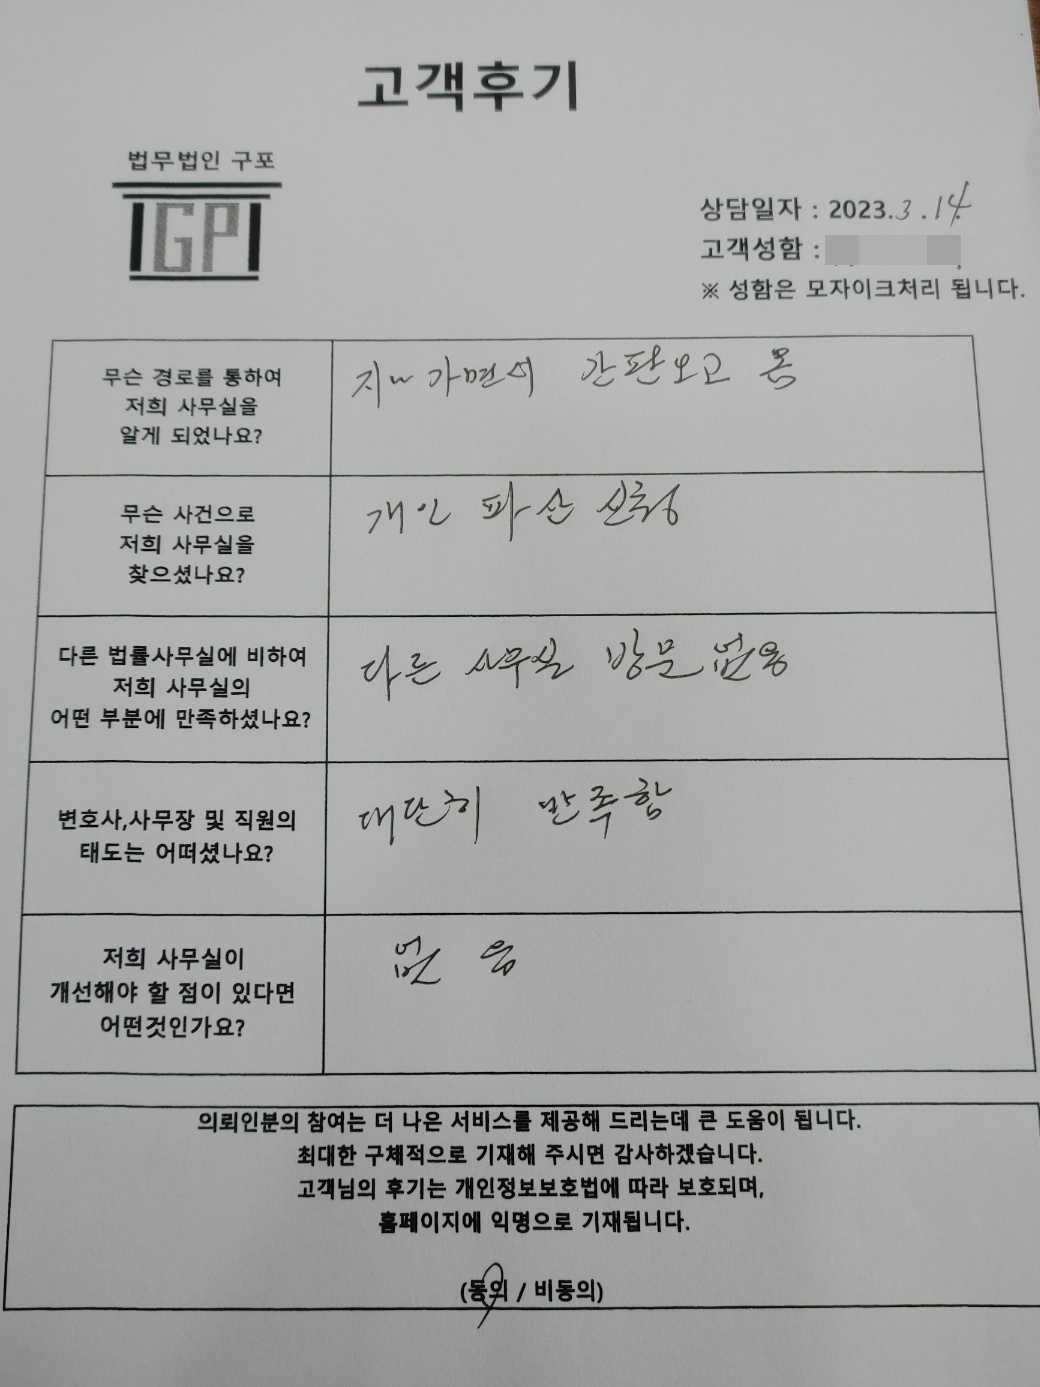 고객후기
법무법인 구포
IGPI
상담일자 : 2023.3.14.
고객성함 :
※ 성함은 모자이크처리 됩니다.
무슨 경로를 통하여
저희 사무실을
알게 되었나요?
지나가면서 간판보고 옴
무슨 사건으로
저희 사무실을
찾으셨나요?
개인 파산 신청
다른 법률사무실에 비하여
저희 사무실의
어떤 부분에 만족하셨나요?
다른 사무실 방문 없음
변호사,사무장 및 직원의
태도는 어떠셨나요?
대단히 만족함
저희 사무실이
개선해야 할 점이 있다면
어떤것인가요?
없음
의뢰인분의 참여는 더 나은 서비스를 제공해 드리는데 큰 도움이 됩니다.
최대한 구체적으로 기재해 주시면 감사하겠습니다.
고객님의 후기는 개인정보보호법에 따라 보호되며,
홈페이지에 익명으로 기재됩니다.
(동의 / 비동의)